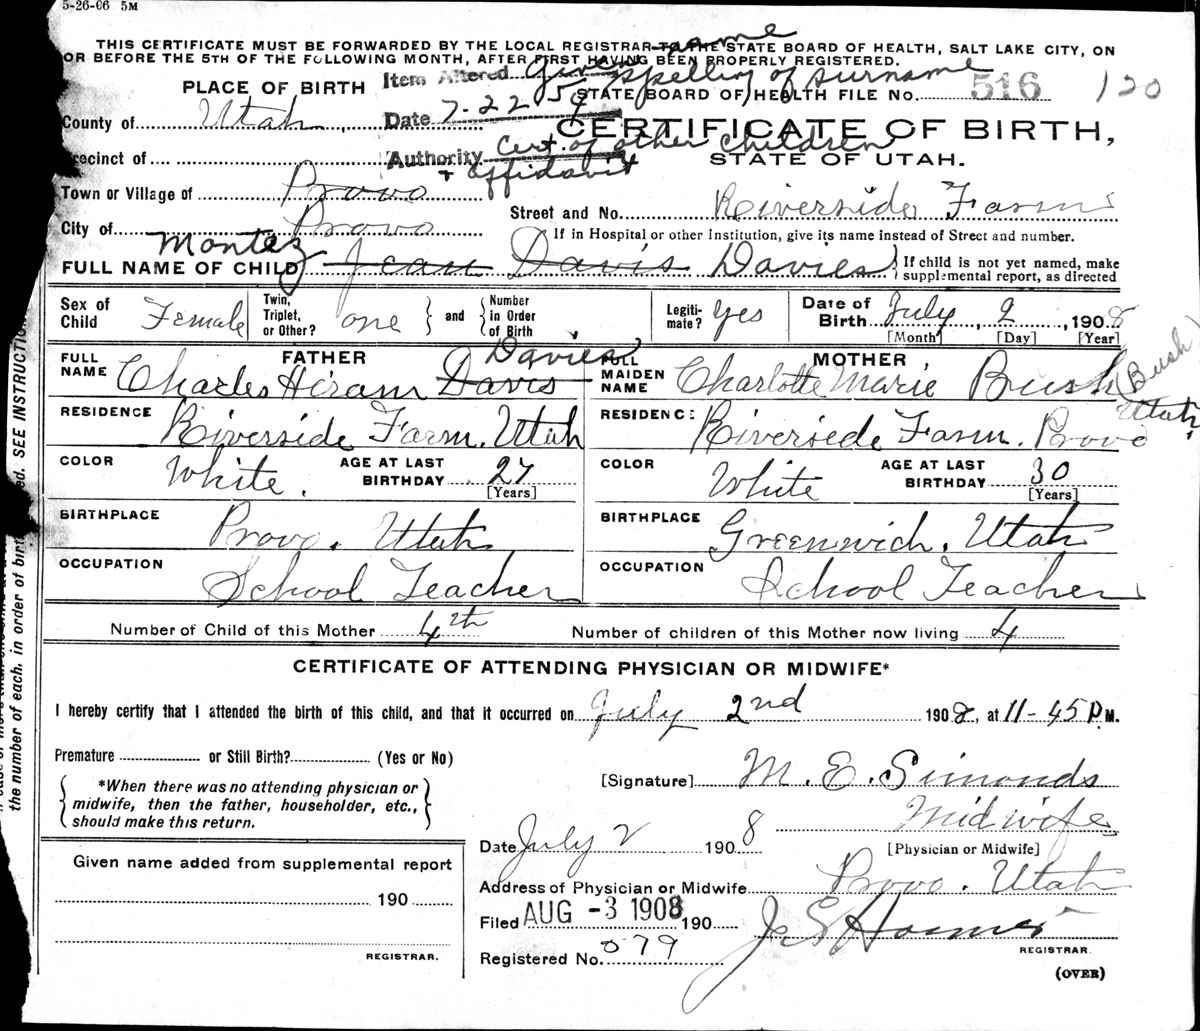 5-26-06 5M
THIS CERTIFICATE MUST BE FORWARDED BY THE LOCAL REGISTRAR TO THE STATE BOARD OF HEALTH, SALT LAKE CITY, ON
OR BEFORE THE 5TH OF THE FOLLOWING MONTH, AFTER FIRST HAVING BEEN PROPERLY REGISTERED.
PLACE OF BIRTH
Item Altered Given name spelling of surname
STATE BOARD OF HEALTH FILE No. 516 120
County of Utah
Date 7-22 59
CERTIFICATE OF BIRTH,
Precinct of
Authority Cert. of other children + affidavit
STATE OF UTAH.
Town or Village of Provo
Street and No. Riverside Farm
City of Provo
If in Hospital or other Institution, give its name instead of Street and number.
Montez
FULL NAME OF CHILD Jean Davis Davies
If child is not yet named, make supplemental report, as directed
Sex of Child Female
Twin, Triplet, or Other? one and Number in Order of Birth
Legitimate? Yes
Date of Birth July 2, 1908
[Month] [Day] [Year]
FATHER
FULL NAME Charles Hiram Davis Davies
MOTHER
FULL MAIDEN NAME Charlotte Marie Bush (Bush)
RESIDENCE Riverside Farm. Utah
RESIDENCE Riverside Farm. Provo Utah
COLOR White.
AGE AT LAST BIRTHDAY 27
[Years]
COLOR White
AGE AT LAST BIRTHDAY 30
[Years]
BIRTHPLACE Provo. Utah
BIRTHPLACE Greenwich. Utah
OCCUPATION School Teacher
OCCUPATION School Teacher
Number of Child of this Mother 4th
Number of children of this Mother now living 4
CERTIFICATE OF ATTENDING PHYSICIAN OR MIDWIFE*
I hereby certify that I attended the birth of this child, and that it occurred on July 2nd 1908, at 11-45 P.M.
Premature or Still Birth? (Yes or No)
[Signature] M. E. Simonds
*When there was no attending physician or
midwife, then the father, householder, etc.,
should make this return.
Midwife
[Physician or Midwife]
Date July 2 1908
Given name added from supplemental report
190
REGISTRAR.
Address of Physician or Midwife Provo. Utah
Filed AUG -3 1908 190
Registered No. 579
REGISTRAR.
(OVER)
SEE INSTRUCTION
the number of each, in order of birth